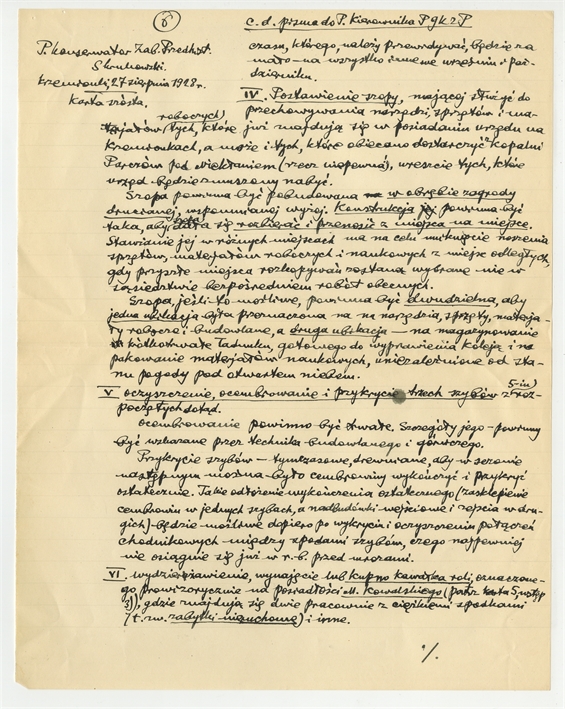 6
c.d. pisma do P. Kierownika PGK i P
P. Konserwator Zab. Przedhist.
S. Krukowski.
Krzemionki, 27 sierpnia 1928 r.
Karta szósta.
czasu, którego, należy przewidywać, będzie za
mało na wszystko inne we wrześniu i paź-
dzierniku.
IV. Postawienie szopy, mającej służyć do
przechowywania narzędzi, sprzętów i ma-
roboczych
terjałów tych, które już znajdują się w posiadaniu urzędu na
Krzemionkach, a może i tych, które obiecano dostarczyć z kopalni
Parczów pod (rzecz niepewna), wreszcie tych, które
urząd będzie zmuszony nabyć.
Szopa powinna być pobudowana w obrębie zagrody
drucianej, wspomnianej wyżej. Konstrukcja jej powinna być
taka, aby dała się rozbierać i przenosić z miejsca na miejsce.
Stawianie jej w różnych miejscach ma na celu uniknięcie noszenia
sprzętów, materjałów roboczych i naukowych z miejsc odległych,
gdy przyszłe miejsca rozkopywań zostaną wybrane nie w
sąsiedztwie bezpośredniem robót obecnych.
Szopa, jeśli to możliwe, powinna być dwudzielna, aby
jedna ubikacja była przeznaczona na narzędzia, sprzęty, materja-
ły robocze i budowlane, a druga ubikacja — na magazynowanie
krótkotrwałe ładunku, gotowego do wyprawienia koleją i na
pakowanie materjałów naukowych, uniezależnione od sta-
nu pogody pod otwartem niebem.
5-iu)
V oczyszczenie, ocembrowanie i przykrycie trzech szybów z roz-
poczętych dotąd.
Ocembrowanie powinno być trwałe. Szczegóły jego powinny
być wskazane przez technika budowlanego i górniczego.
Przykrycie szybów — tymczasowe, drewniane, aby w sezonie
następnym można było cembrowiny wykończyć i przykryć
ostatecznie. Takie odłożenie wykończenia ostatecznego (zasklepienie
cembrowin w jednych szybach, a nadbudówki wejściowe i zejścia w dru-
gich) będzie możliwe dopiero po wykryciu i oczyszczeniu połączeń
chodnikowych między spodami szybów, czego najpewniej
nie osiągnie się już w r. b. przed mrozami.
VI wydzierżawienie, wynajęcie lub kupno kawałka roli, oznaczone-
go prowizorycznie na posiadłości M. Kowalskiego (patrz karta 5, ustęp
3)), gdzie znajdują się dwie pracownie z ciężkimi spodkami
(t. zw. zabytki nieruchome) i inne.
./.